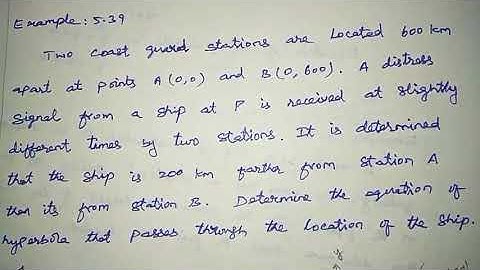 Example: 5.39
Two coast guard stations are located 600 km
apart at points A(0,0) and B(0,600). A distress
signal from a ship at P is received at slightly
different times by two stations. It is determined
that the ship is 200 km farther from station A
than its from station B. Determine the equation of
hyperbola that passes through the location of the ship.
y